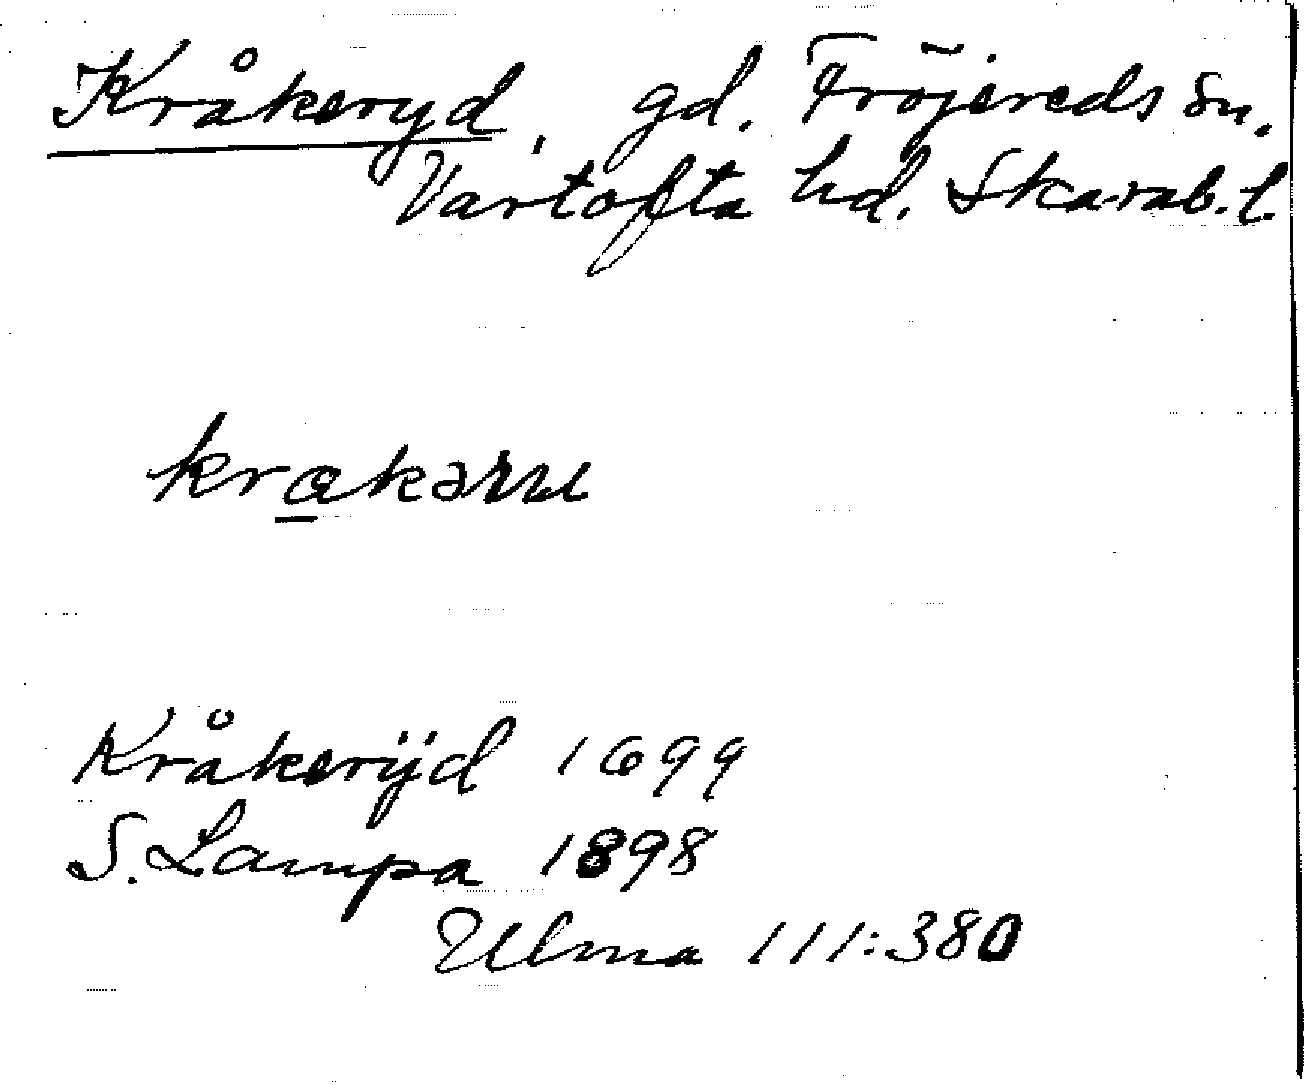 Kråkeryd, gd. Fröjereds sn.
Vartofta hd. Skarab. l.
krakərne
Kråkerÿd 1699
S. Lampa 1898
Ulma 111:380